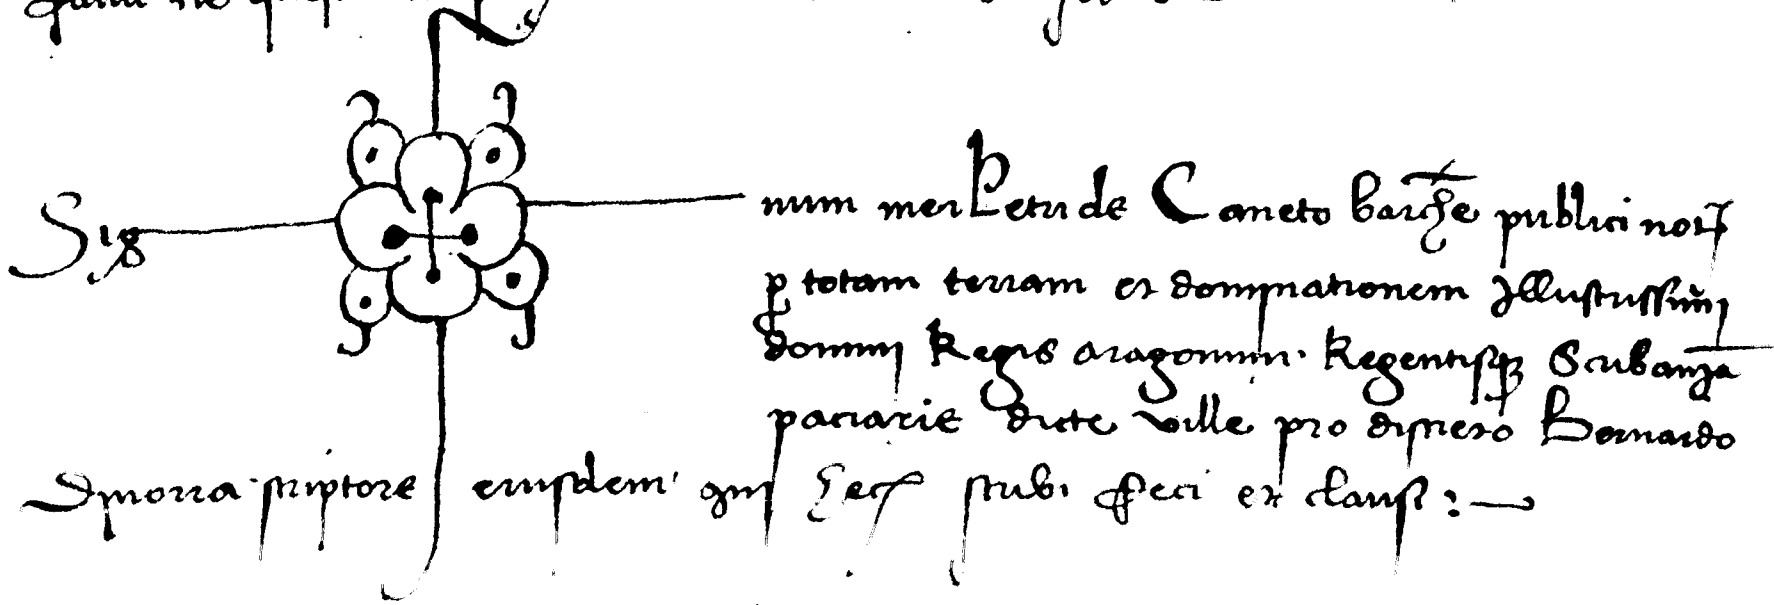 Sig num mei Petri de Caneto barche publici not
p totam terram et dominationem Illustrissimi
domini Regis aragonum. Regentisq Scribania
paciarie dicte ville pro discreto Bernardo
scriptore eiusdem qui hec scribi feci et clausi :—